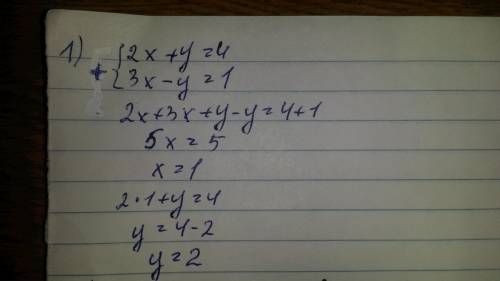 1) {2x+y=4
+ {3x-y=1
2x+3x+y-y=4+1
5x=5
x=1
2·1+y=4
y=4-2
y=2